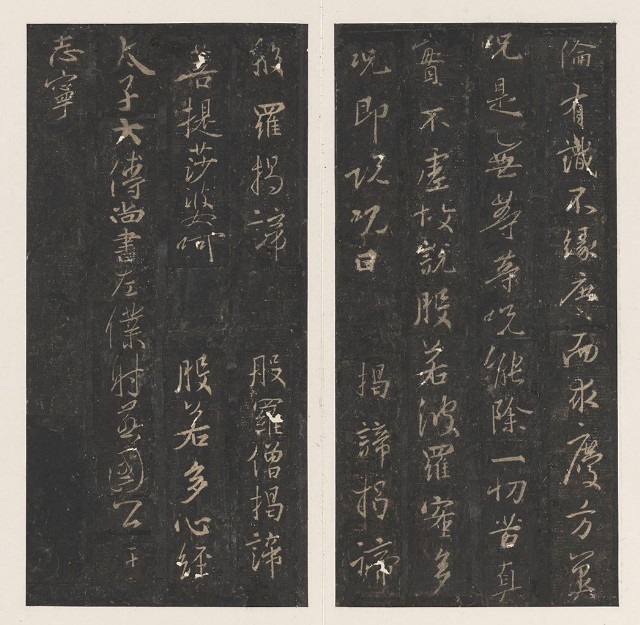 倫有識不緣慶而求慶方冀
呪是無等等呪能除一切苦真
實不虛故說般若波羅蜜多
呪即說呪曰 揭諦揭諦
般羅揭諦 般羅僧揭諦
菩提莎婆呵 般若多心經
太子太傅尚書左僕射燕國公于
志寧